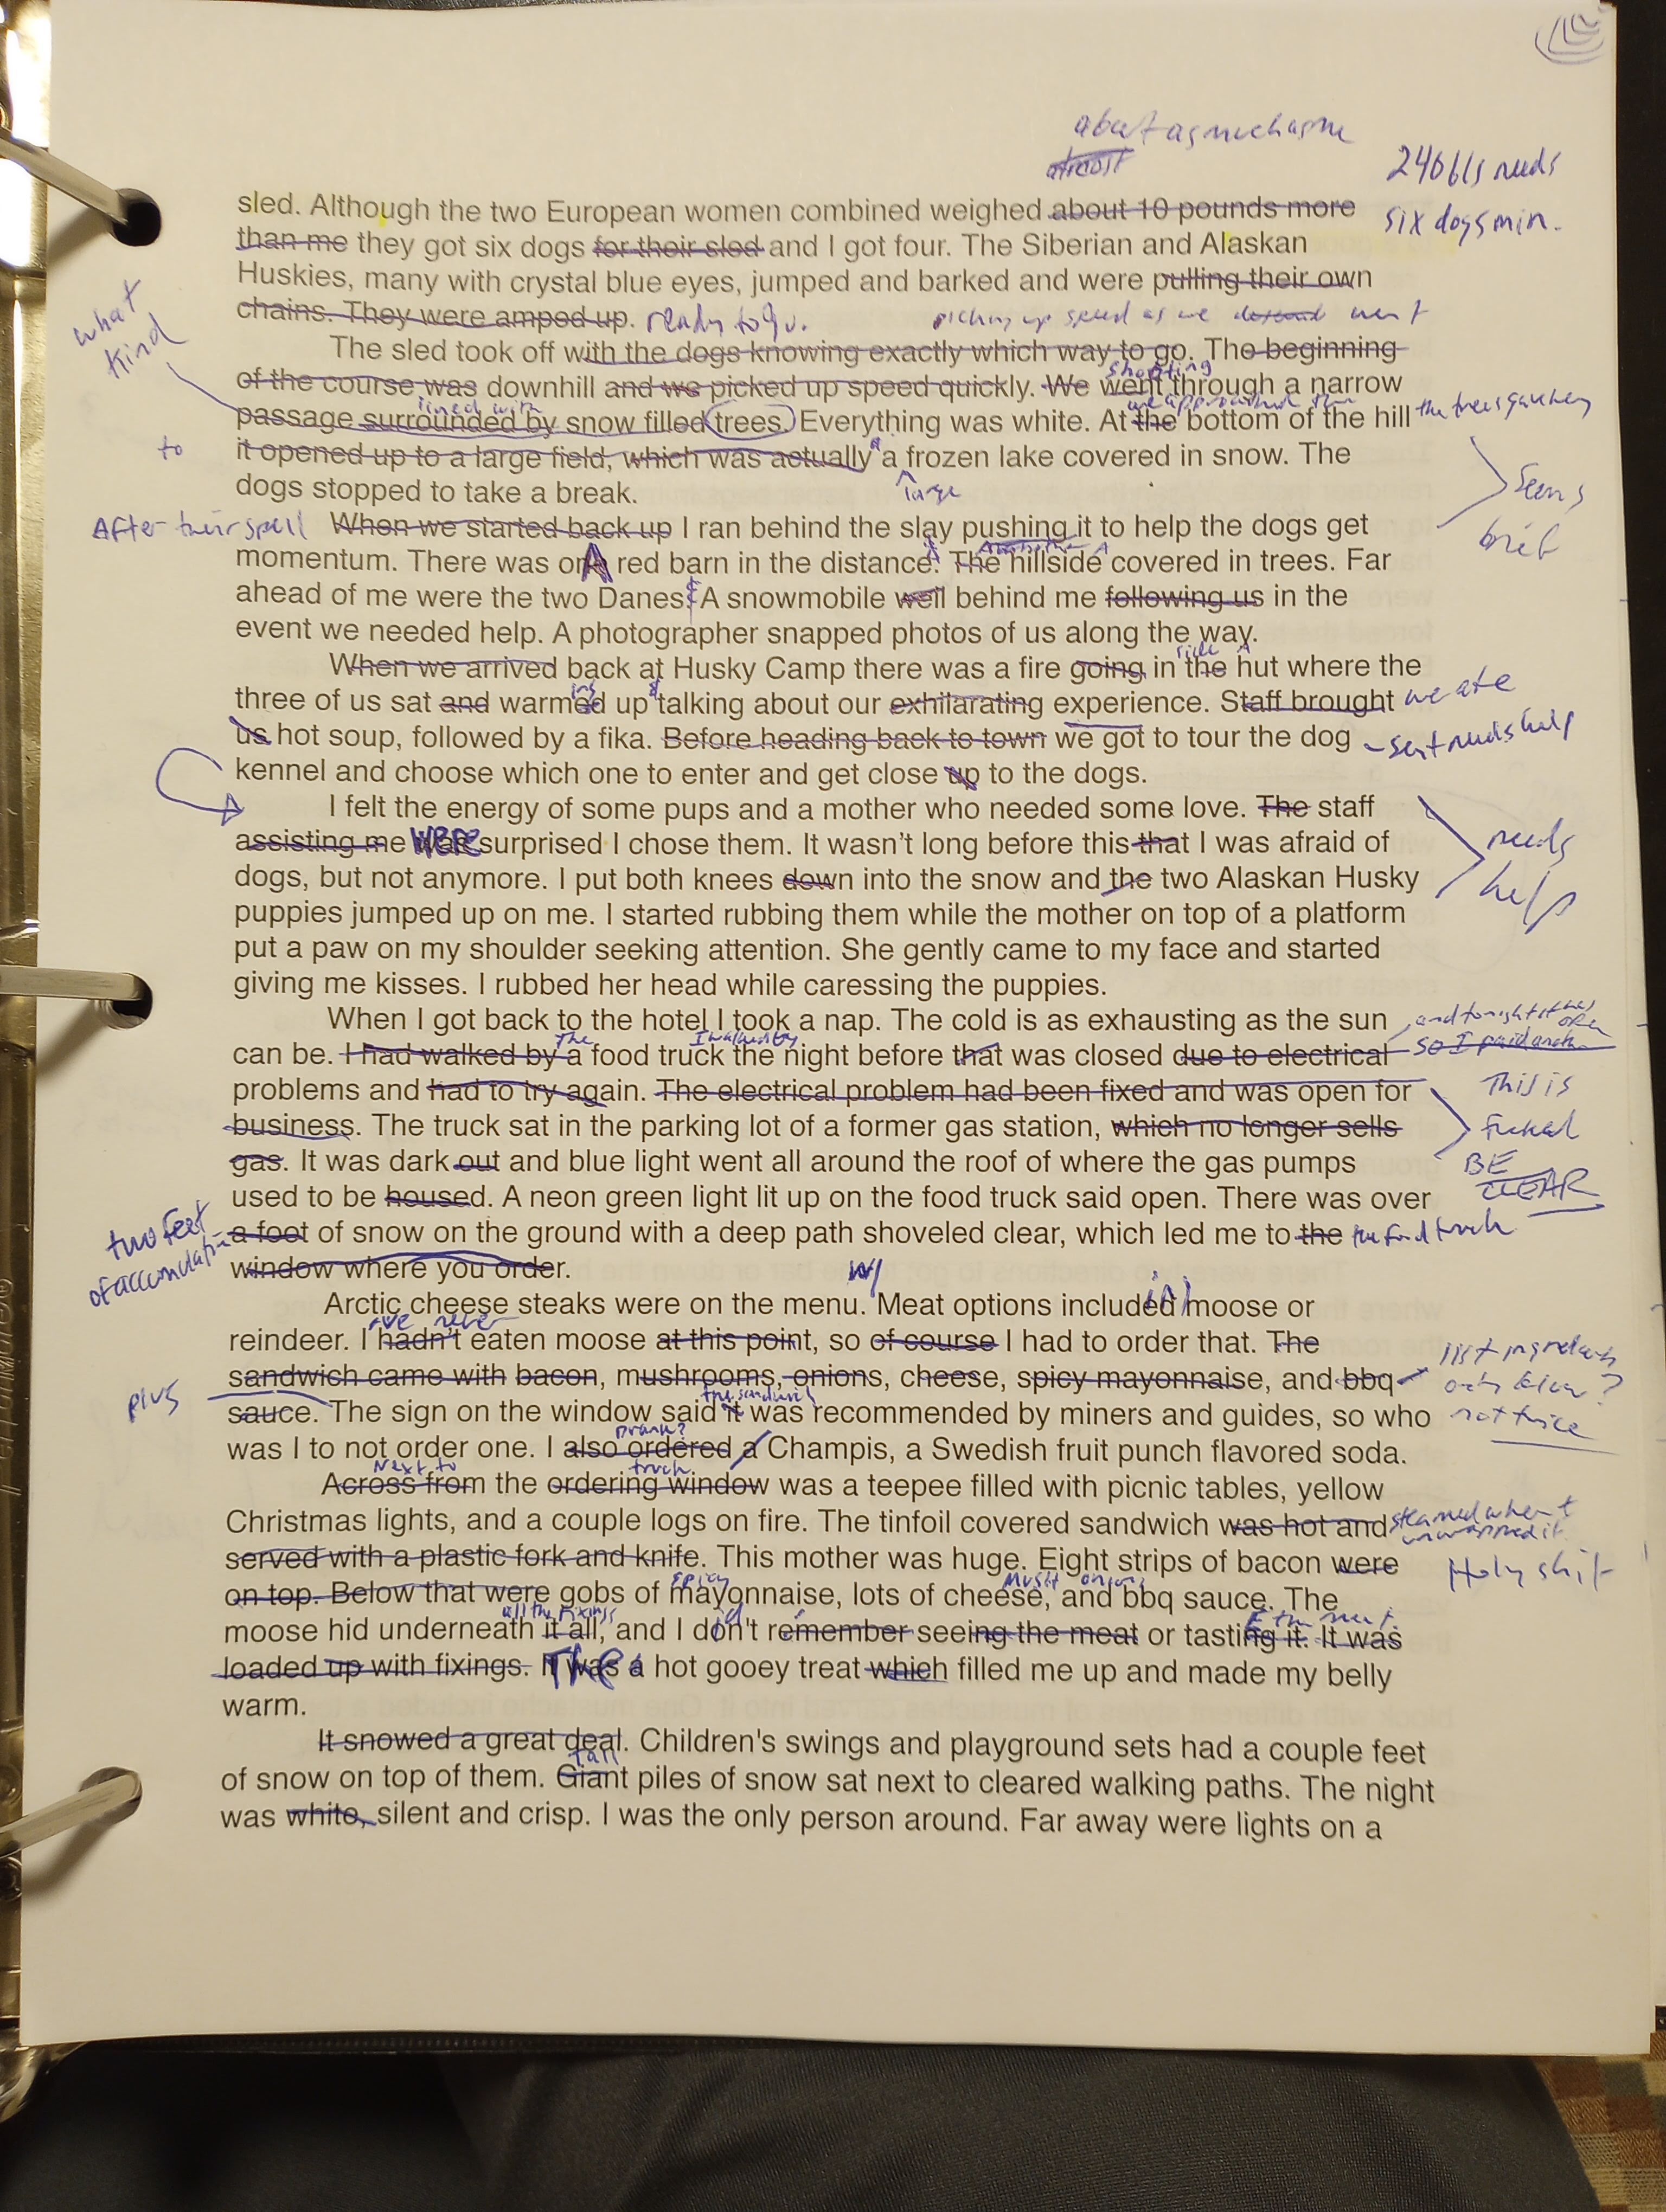 about as much as me
almost
246 lbs needs
six dogs min.
sled. Although the two European women combined weighed about 10 pounds more
than me they got six dogs for their sled and I got four. The Siberian and Alaskan
Huskies, many with crystal blue eyes, jumped and barked and were pulling their own
chains. They were amped up. ready to go.
picking up speed as we went
what
kind
The sled took off with the dogs knowing exactly which way to go. The beginning
of the course was downhill and we picked up speed quickly. We went through a narrow
shooting
passage surrounded by snow filled trees. Everything was white. At the bottom of the hill
lined with
we approached the
the trees gave way
to
it opened up to a large field, which was actually a frozen lake covered in snow. The
large
dogs stopped to take a break.
Seems
brief
After their spell
When we started back up I ran behind the slay pushing it to help the dogs get
momentum. There was one red barn in the distance. The hillside covered in trees. Far
A
ahead of me were the two Danes. A snowmobile well behind me following us in the
&
event we needed help. A photographer snapped photos of us along the way.
When we arrived back at Husky Camp there was a fire going in the hut where the
three of us sat and warmed up talking about our exhilarating experience. Staff brought
ing
&
we ate
us hot soup, followed by a fika. Before heading back to town we got to tour the dog
sent needs help
kennel and choose which one to enter and get close up to the dogs.
I felt the energy of some pups and a mother who needed some love. The staff
assisting me was surprised I chose them. It wasn't long before this that I was afraid of
were
needs
help
dogs, but not anymore. I put both knees down into the snow and the two Alaskan Husky
puppies jumped up on me. I started rubbing them while the mother on top of a platform
put a paw on my shoulder seeking attention. She gently came to my face and started
giving me kisses. I rubbed her head while caressing the puppies.
When I got back to the hotel I took a nap. The cold is as exhausting as the sun
can be. I had walked by a food truck the night before that was closed due to electrical
The
I walked by
and tonight it was
open
so I
problems and had to try again. The electrical problem had been fixed and was open for
business. The truck sat in the parking lot of a former gas station, which no longer sells
This is
fucked
BE
CLEAR
gas. It was dark out and blue light went all around the roof of where the gas pumps
used to be housed. A neon green light lit up on the food truck said open. There was over
two feet
of accumulation
a foot of snow on the ground with a deep path shoveled clear, which led me to the
the food truck
window where you order.
w/
Arctic cheese steaks were on the menu. Meat options included moose or
ing
reindeer. I hadn't eaten moose at this point, so of course I had to order that. The
've never
sandwich came with bacon, mushrooms, onions, cheese, spicy mayonnaise, and bbq
plus
list ingredients
only below?
not twice
sauce. The sign on the window said it was recommended by miners and guides, so who
the sandwich
was I to not order one. I also ordered a Champis, a Swedish fruit punch flavored soda.
drank?
Across from the ordering window was a teepee filled with picnic tables, yellow
Next to
truck
Christmas lights, and a couple logs on fire. The tinfoil covered sandwich was hot and
steamed when I
unwrapped it.
served with a plastic fork and knife. This mother was huge. Eight strips of bacon were
Holy shit
on top. Below that were gobs of mayonnaise, lots of cheese, and bbq sauce. The
spicy
onions
moose hid underneath it all, and I don't remember seeing the meat or tasting it. It was
all the fixings
id
the meat.
loaded up with fixings. It was a hot gooey treat which filled me up and made my belly
The
warm.
It snowed a great deal. Children's swings and playground sets had a couple feet
of snow on top of them. Giant piles of snow sat next to cleared walking paths. The night
tall
was white, silent and crisp. I was the only person around. Far away were lights on a